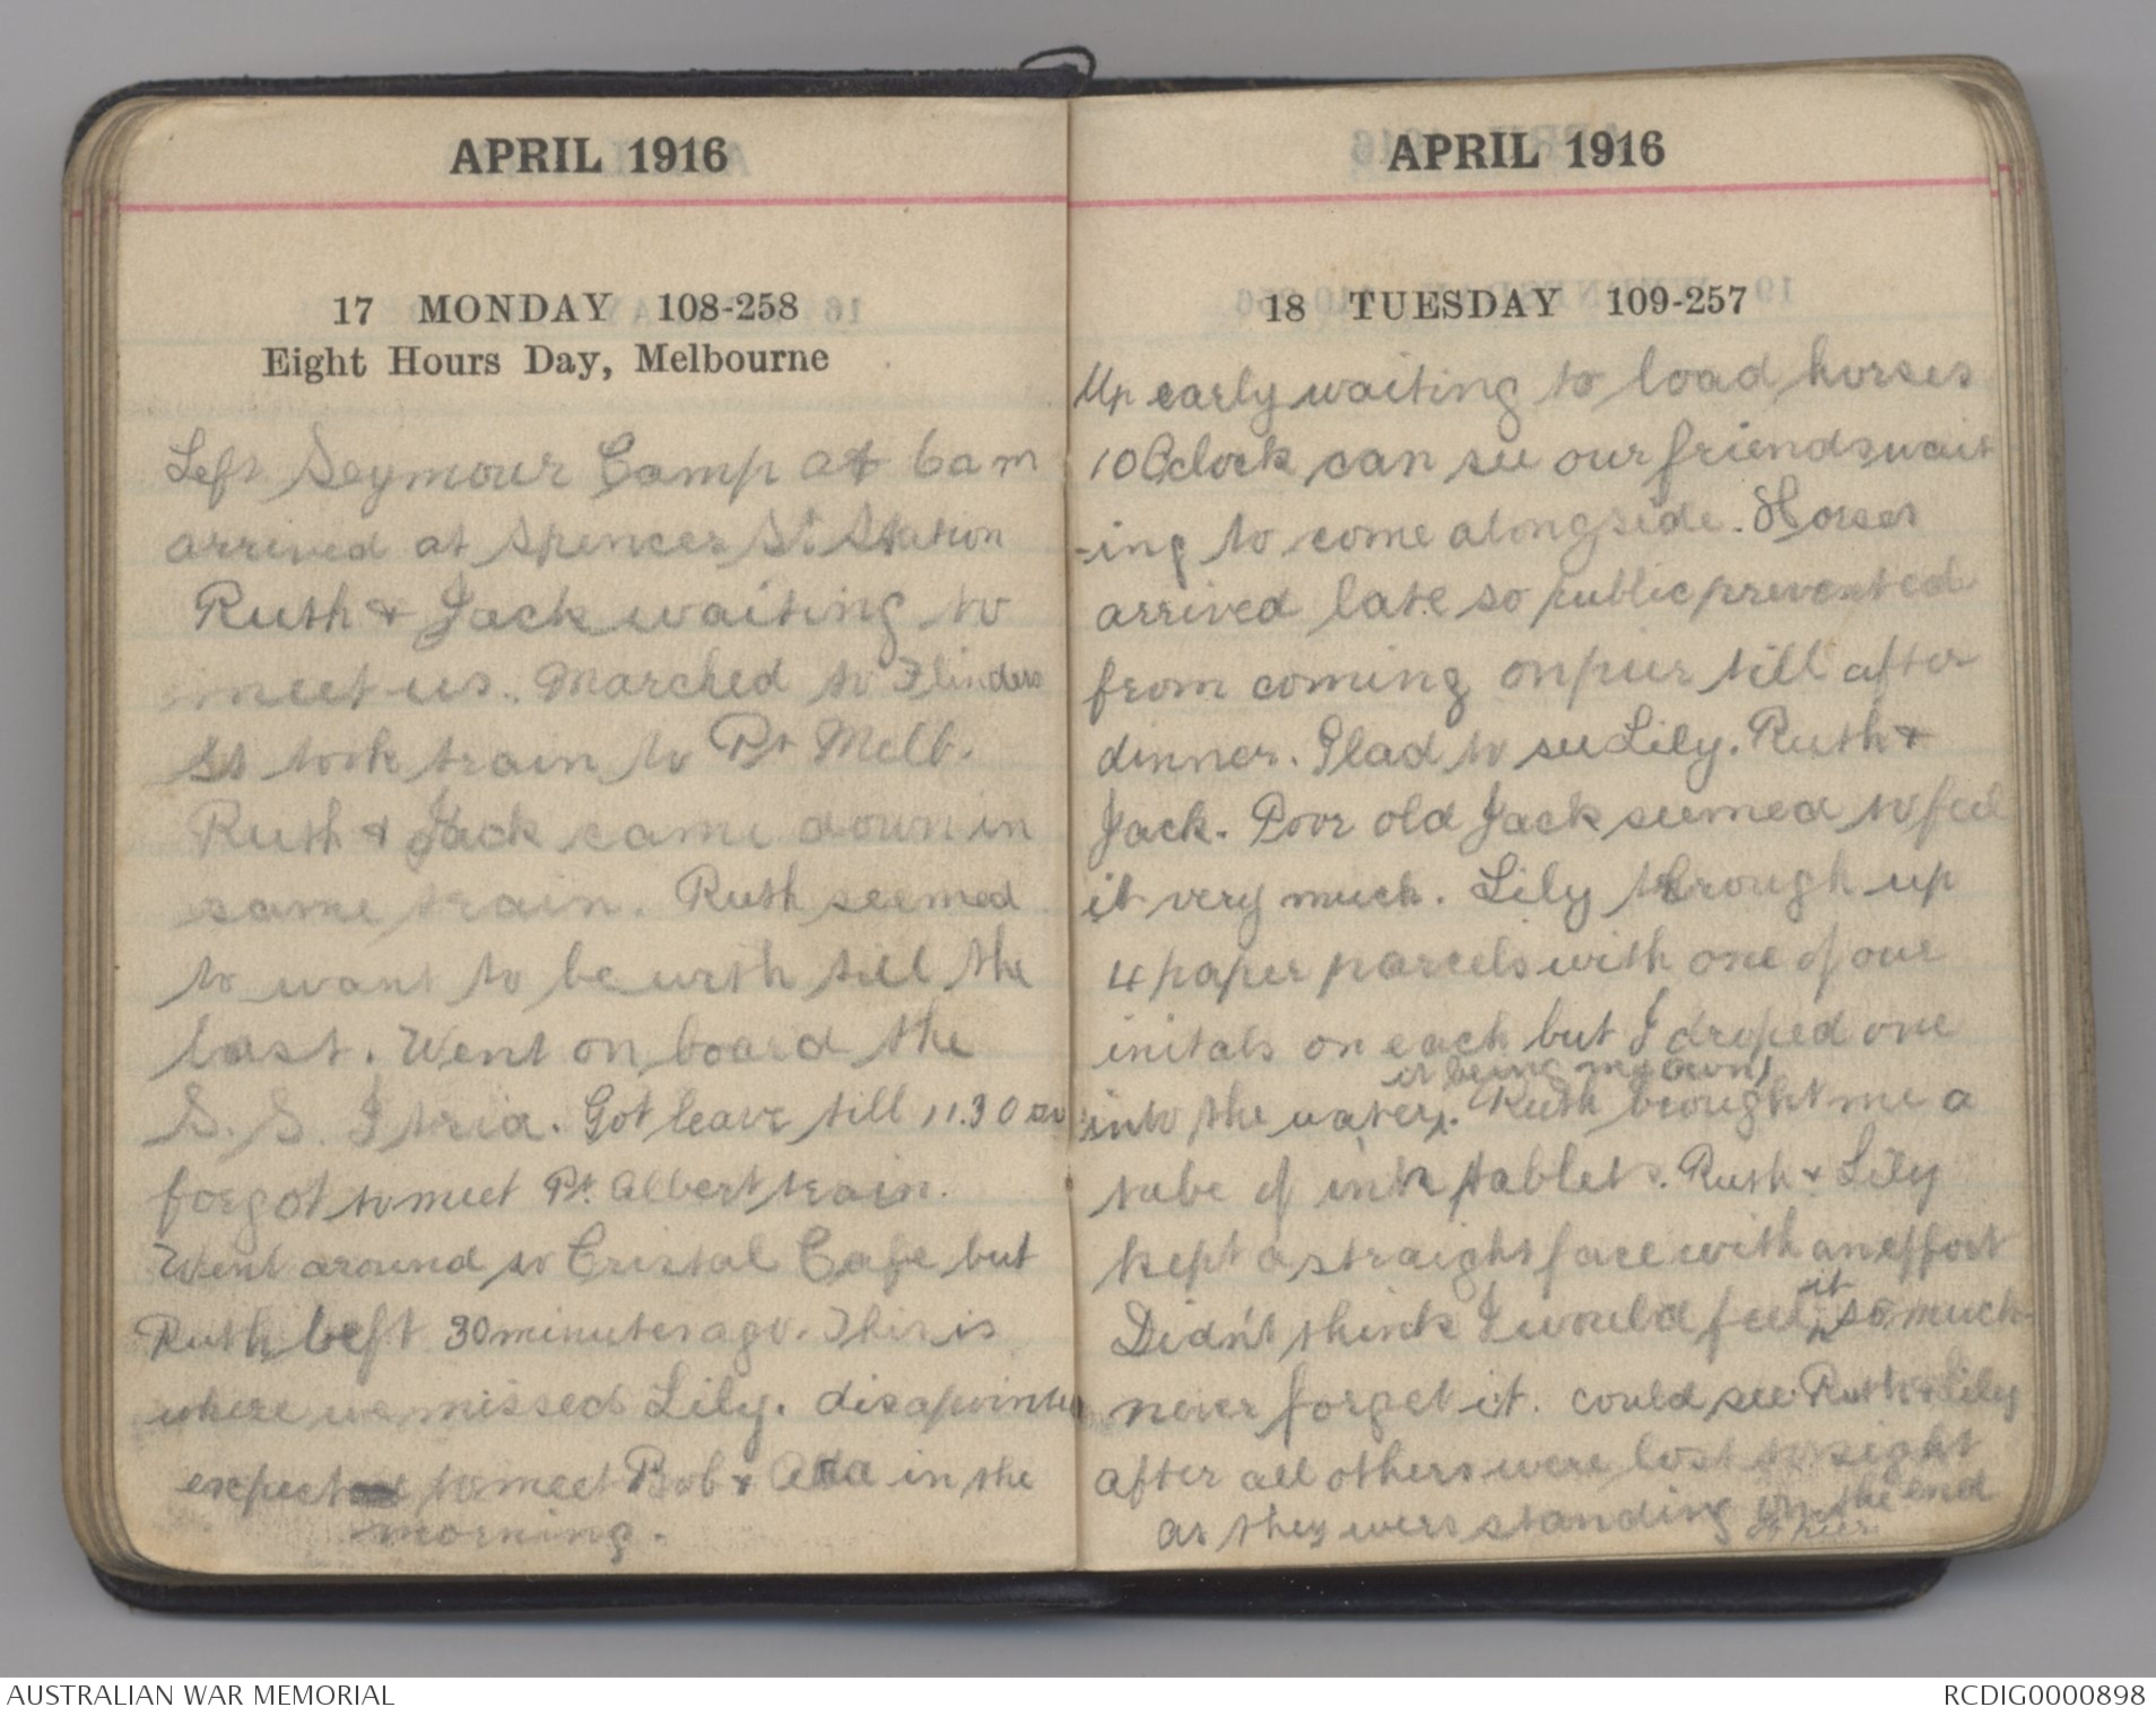 APRIL 1916
17 MONDAY 108-258
Eight Hours Day, Melbourne
Left Seymour Camp at 6 am
arrived at Spencer St Station
Ruth & Jack waiting to
meet us. Marched to Flinders
St took train to Pt Melb.
Ruth & Jack came down in
same train. Ruth seemed
to want to be with till the
last. Went on board the
S.S. Istria. Got leave till 11.30
forgot to meet Pt. Albert train.
Went around to Cristal Cafe but
Ruth left 30 minutes ago. This is
where we missed Lily. disapointed
expect to meet Bob & Ada in the
morning.
APRIL 1916
18 TUESDAY 109-257
Up early waiting to load horses
10 Oclock can see our friends wait
-ing to come alongside. Horses
arrived late so public prevented
from coming on pier till after
dinner. Glad to see Lily. Ruth &
Jack. Poor old Jack seemed to feel
it very much. Lily through up
4 paper parcels with one of our
initals on each but I droped one
it being my own,
into the water. Ruth brought me a
tube of ink tablets. Ruth & Lily
kept a straight face with an effort
Didn't think I would feel it so much
never forget it. could see Ruth & Lily
after all others were lost to sight
as they were standing on the end
of pier.
AUSTRALIAN WAR MEMORIAL
RCDIG0000898